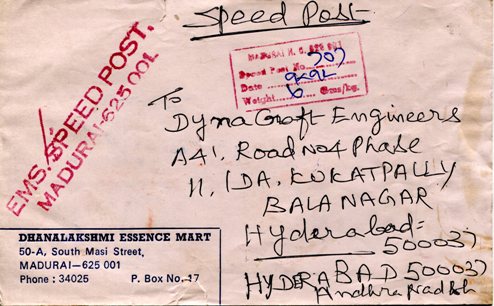 Speed Post
EMS. SPEED POST.
MADURAI-625 001
MADURAI H. O. 625 001
Speed Post No. 707
Date
Weight 6 Gms/kg.
To
Dyna Craft Engineers
A41, Road No4 Phase
11, IDA, KUKATPALLY
BALANAGAR
Hyderabad=
500037
HYDERABAD 500037
Andhra Pradesh
DHANALAKSHMI ESSENCE MART
50-A, South Masi Street,
MADURAI—625 001
Phone : 34025 P. Box No. 17